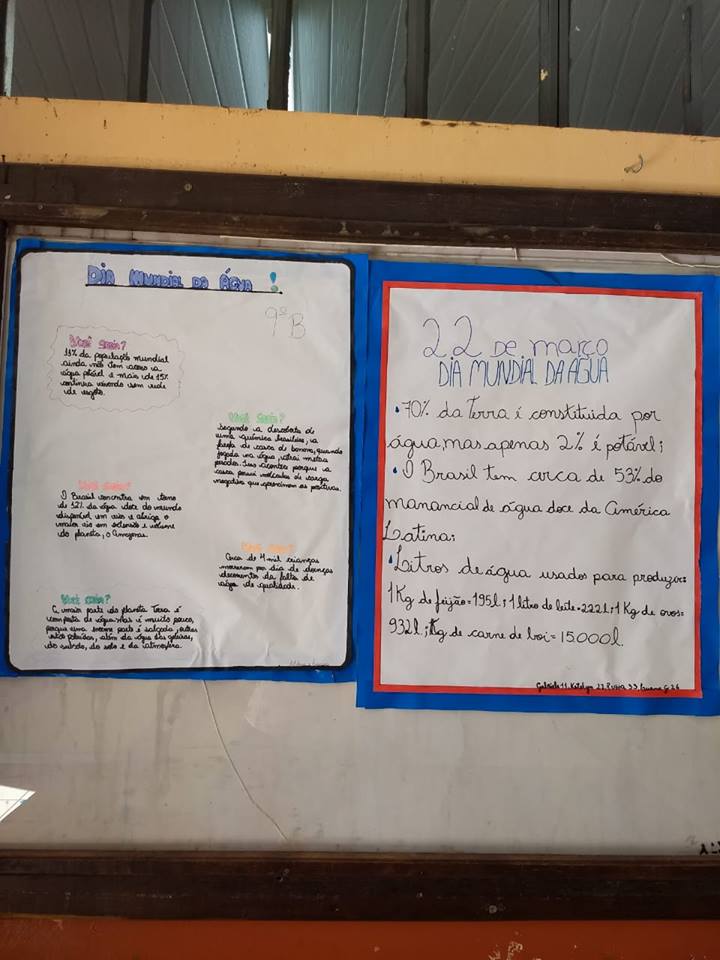 Dia Mundial da Água !
9º B
Você sabia?
18% da população mundial
ainda não tem acesso a
água potável e mais de 15%
continua vivendo sem rede
de esgoto.
Você sabia?
Segundo a descoberta de
uma química brasileira, a
farofa de casca de banana, quando
jogada na água, retira metais
pesados. Isso acontece porque a
casca possui moléculas de carga
negativa que aproximam as positivas.
Você sabia?
O Brasil concentra em torno
de 12% da água doce do mundo
disponível em rios e abriga o
maior rio em extensão e volume
do planeta, o Amazonas.
Você sabia?
Cerca de 4 mil crianças
morrem por dia de doenças
decorrentes da falta de
água de qualidade.
Você sabia?
A maior parte do planeta Terra é
composta de água, mas é muito pouco,
porque uma enorme parte é salgada, outras
estão poluídas, além da água das geleiras,
do subsolo, do solo e da atmosfera.
22 De março
DIA MUNDIAL DA ÁGUA
• 70% da Terra é constituída por
água, mas apenas 2% é potável;
• O Brasil tem cerca de 53% do
manancial de água doce da América
Latina;
• Litros de água usados para produzir:
1Kg de feijão = 195l; 1 litro de leite = 222l; 1 Kg de ovos =
932l; 1Kg de carne de boi = 15000l.